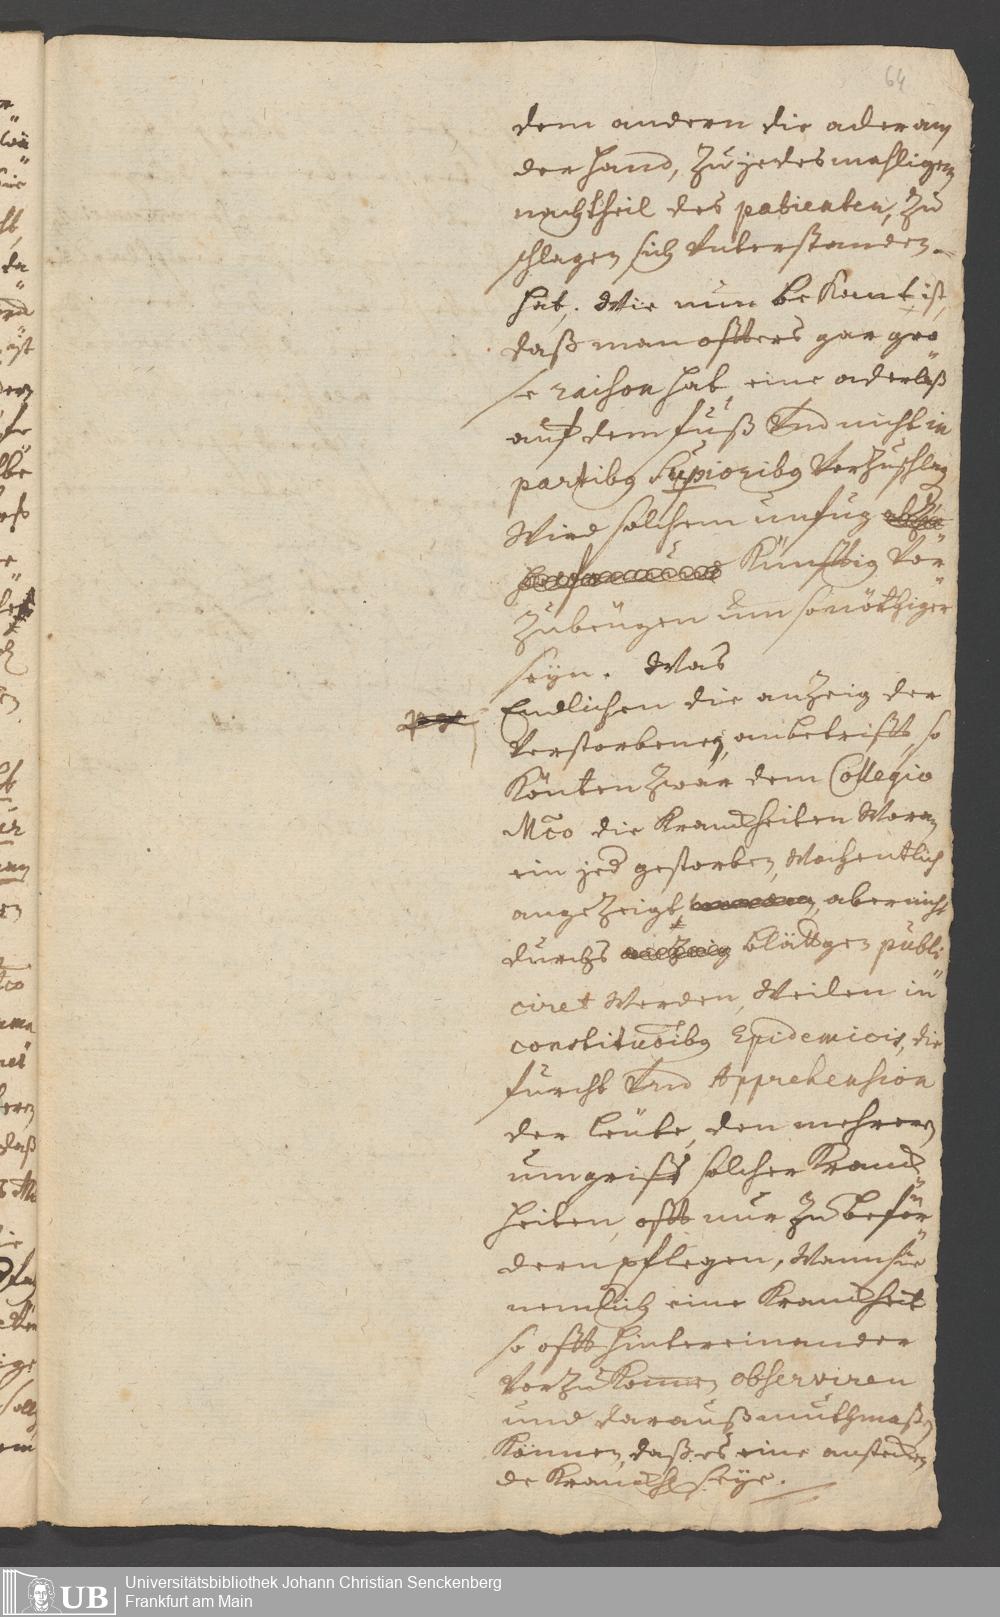 64
dem andern die ader am
der hand, zu jedesmahligen
nachtheil des patienten, zu
schlagen sich Unterstanden
hat. Wie nun bekant ist,
daß man öffters gar gro
se raison hat, eine aderläß
auf dem fuß Und nicht in
partibus Superioribus Vorzuschlag
Wird solchem unfug
Künfftig Vor
zubeugen um so nöthiger
seyn. Was
Endlichen die anzeig der
Verstorbenen anbetrifft, so
Könten zwar dem Collegio
Mco die Kranckheiten Woran
ein jed gestorben, Wochentlich
angezeigt, aber nicht
durchs blättgen publi
ciret Werden, Weilen in
constitutõibus Epidemicis, die
furcht Und Apprehension
der leute, den mehrern
umgriff solcher Kranck
heiten, offt nur zu beför
dern pflegen, Wann sie
nemlich eine Kranckheit
so offt hintereinander
Vorzukommen observiren
und darauß muthmaßen
Können, daß es eine anstecken
de Kranckht seye.
Universitätsbibliothek Johann Christian Senckenberg
Frankfurt am Main
UB